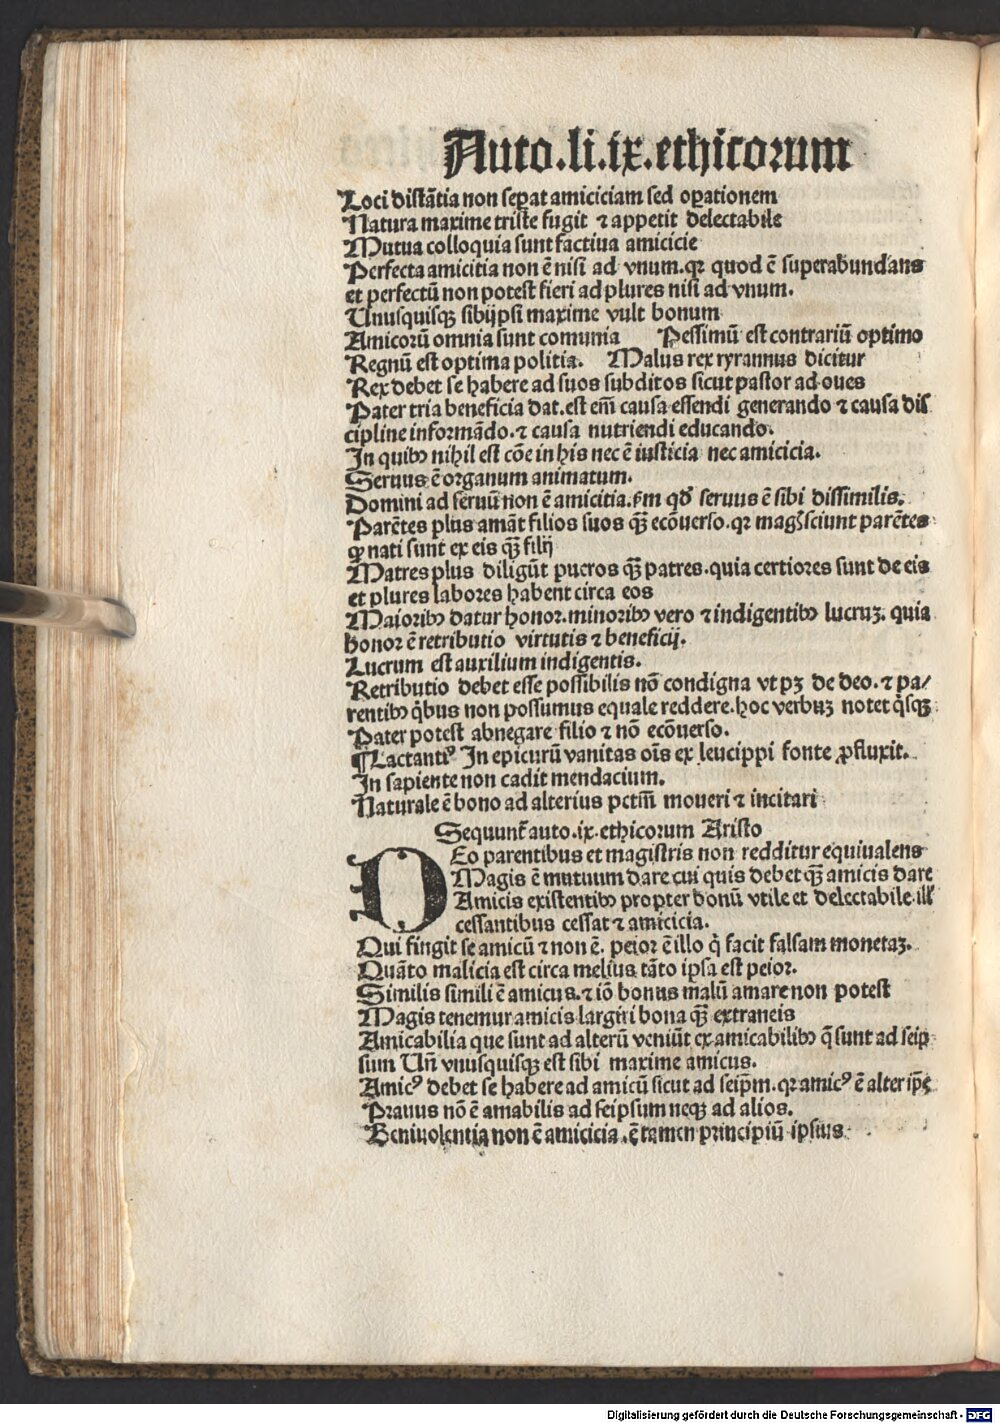 Auto.li.ix.ethicorum
Loci distãtia non sep̱at amiciciam sed op̱ationem
Natura maxime triste fugit ⁊ appetit delectabile
Mutua colloquia sunt factiua amicicie
Perfecta amicitia non ẽ nisi ad vnum.qꝛ quod ẽ superabundans
et perfectũ non potest fieri ad plures nisi ad vnum.
Unusquisqꝫ sibijpsi maxime vult bonum
Amicorũ omnia sunt comunia Pessimũ est contrariũ optimo
Regnũ est optima politia. Malus rex tyrannus dicitur
Rex debet se habere ad suos subditos sicut pastor ad oues
Pater tria beneficia dat.est em̃ causa essendi generando ⁊ causa dis
cipline informãdo.⁊ causa nutriendi educando.
In quibꝰ nihil est cõe in his nec ẽ iusticia nec amicicia.
Seruus ẽ organum animatum.
Domini ad seruũ non ẽ amicitia.ẜm qđ seruus ẽ sibi dissimilis.
Parẽtes plus amãt filios suos qꝫ̃ ecõuerso.qꝛ magꝭ sciunt parẽtes
ꝙ nati sunt ex eis qꝫ̃ filij
Matres plus diligũt pueros qꝫ̃ patres.quia certiores sunt de eis
et plures labores habent circa eos
Maioribꝰ datur honor.minoribꝰ vero ⁊ indigentibꝰ lucruꝫ. quia
honor ẽ retributio virtutis ⁊ beneficij.
Lucrum est auxilium indigentis.
Retributio debet esse possibilis nõ condigna vt pꝫ de deo.⁊ pa/
rentibꝰ q̇bus non possumus equale reddere.hoc verbuꝫ notet q̇sqꝫ
Pater potest abnegare filio ⁊ nõ ecõuerso.
¶Lactantꝰ In epicurũ vanitas oĩs ex leucippi fonte ꝓfluxit.
In sapiente non cadit mendacium.
Naturale ẽ bono ad alterius pctm̃ moueri ⁊ incitari
Sequunt̃ auto.ix.ethicorum Aristo
DEo parentibus et magistris non redditur equiualens
Magis ẽ mutuum dare cui quis debet qꝫ̃ amicis dare
Amicis existentibꝰ propter bonũ vtile et delectabile ill'
cessantibus cessat ⁊ amicicia.
Qui fingit se amicũ ⁊ non ẽ. peior ẽ illo q̇ facit falsam monetaꝫ.
Quãto malicia est circa melius tãto ipsa est peior.
Similis simili ẽ amicus.⁊ iõ bonus malũ amare non potest
Magis tenemur amicis largiri bona qꝫ̃ extraneis
Amicabilia que sunt ad alterũ veniũt ex amicabilibꝰ q̃ sunt ad seip
sum Uñ vnusquisqꝫ est sibi maxime amicus.
Amicꝰ debet se habere ad amicũ sicut ad seip̃m.qꝛ amicꝰ ẽ alter ip̃e
Prauus nõ ẽ amabilis ad seipsum neqꝫ ad alios.
Beniuolentia non ẽ amicicia.ẽ tamen principiũ ipsius
Digitalisierung gefördert durch die Deutsche Forschungsgemeinschaft - DFG